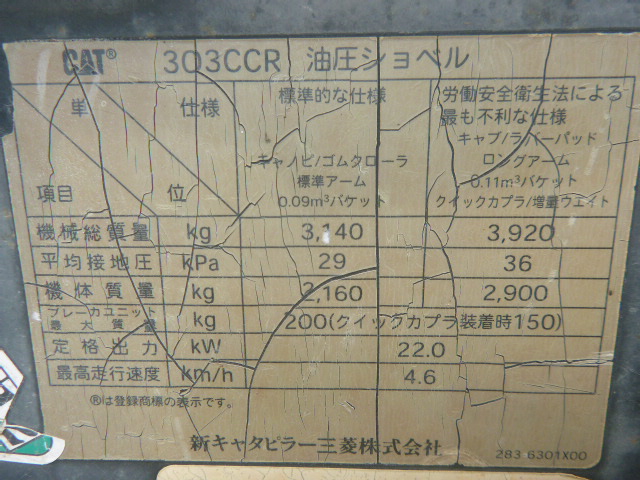 CAT® 303CCR 油圧ショベル
単 仕様 標準的な仕様 労働安全衛生法による
最も不利な仕様
キャノピ/ゴムクローラ キャブ/ラバーパッド
標準アーム ロングアーム
項目 位 0.09m³バケット 0.11m³バケット
クイックカプラ/増量ウエイト
機械総質量 kg 3,140 3,920
平均接地圧 kPa 29 36
機体質量 kg 2,160 2,900
ブレーカユニット
最大質量 kg 200(クイックカプラ装着時150)
定格出力 kW 22.0
最高走行速度 km/h 4.6
®は登録商標の表示です。
新キャタピラー三菱株式会社 283 6301X00